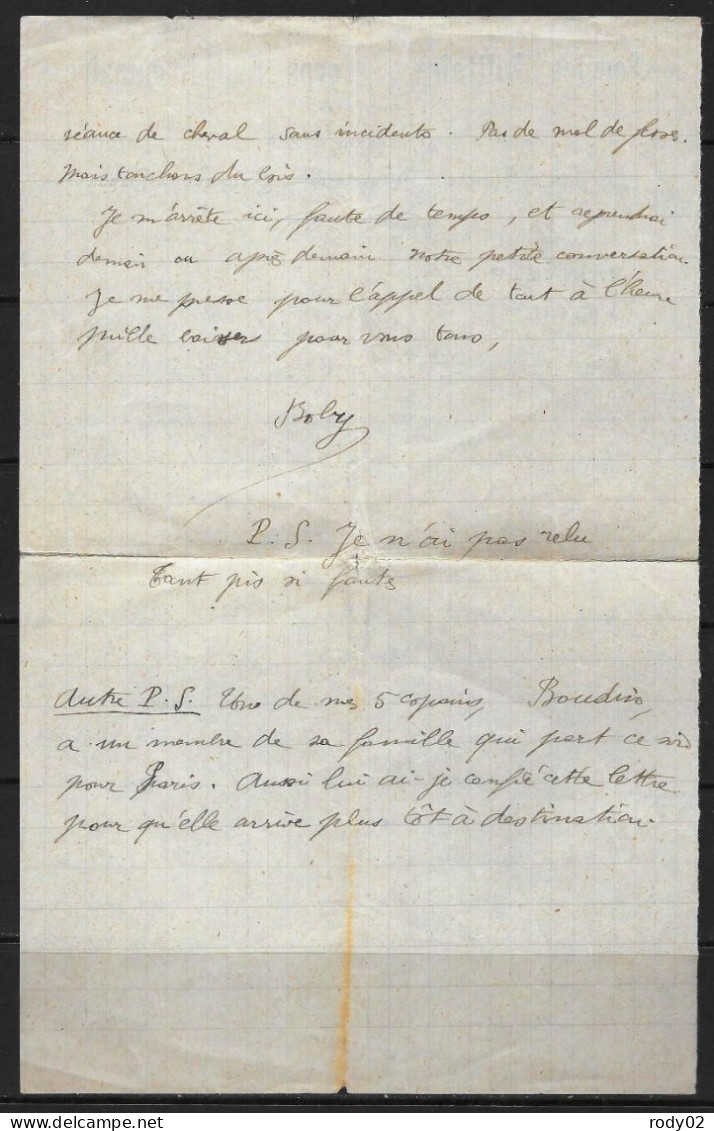 séance de cheval sans incidents. Pas de mal de fesses.
Mais touchons du bois.
Je m'arrête ici, faute de temps, et reprendrai
demain ou après demain notre petite conversation.
Je me presse pour l'appel de tout à l'heure
Mille baisers pour vous tous,
Boby
P.S. Je n'ai pas relu
Tant pis si fautes
Autre P.S. Un de mes 5 copains, Boudin,
a un membre de sa famille qui part ce soir
pour Paris. Aussi lui ai-je confié cette lettre
pour qu'elle arrive plus tôt à destination.
rody02